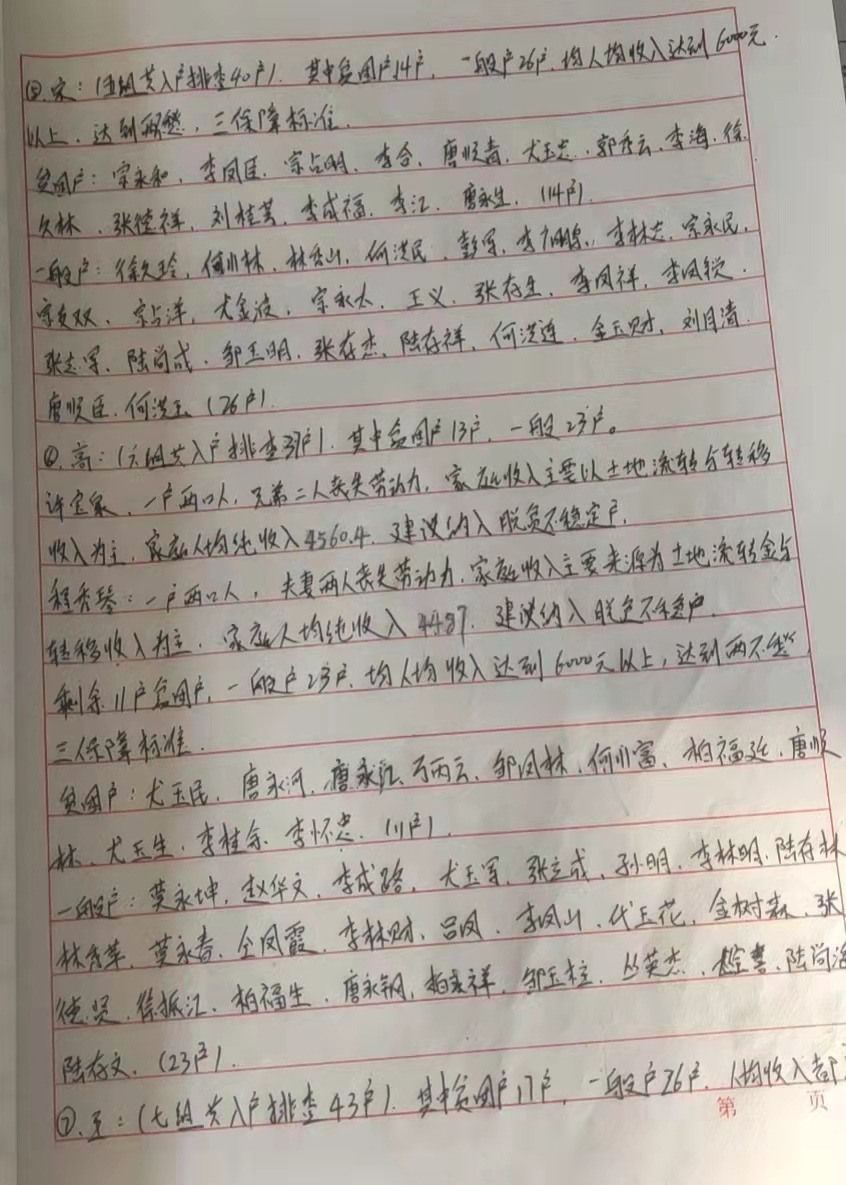 宋：（五组共入户排查40户）．其中贫困户14户，一般户26户．均人均收入达到6000元
以上，达到两愁，三保障标准．
贫困户：宗永和、李凤臣、宗占明、李合、唐顺青、尤玉忠、郭秀云、李海、徐
久林、张德祥、刘桂芸、李成福、李江、唐永生．（14户）．
一般户：徐久玲，何小林，林秀山，何洪民，彭军，李林志，宗永民，
宗友双、宗占洋，尤金波，宗永太，王义，张存生，李凤祥，李凤锐．
张志军、陆尚成、邹玉明、张存杰、陆存祥，何洪连，金玉财，刘月清．
唐顺臣．何洪玉（26户）．
⑥．高：（六组共入户排查37户）．其中贫困户13户，一般23户。
许宝家，一户两口人，兄弟二人丧失劳动力，家庭收入主要以土地流转与转移
收入为主，家庭人均纯收入4560.4．建议纳入脱贫不稳定户．
程秀琴：一户两口人，夫妻两人丧失劳动力，家庭收入主要来源为土地流转金与
转移收入为主．家庭人均纯收入4487．建议纳入脱贫不稳定户．
剩余11户贫困户，一般户23户，均人均收入达到6000元以上，达到两不愁
三保障标准．
贫困户：尤玉民、唐永河、唐永江、万丙云、邹凤林、何小富、柏福廷、唐顺
林、尤玉生、李桂余、李怀忠．（11户）．
一般户：莫永坤，赵华文，李成路，尤玉军，张立成，孙明，李林明，陆存林
林秀苹，莫永春，仝凤霞，李林财，吕凤，李凤山，代玉花，金树森，张
德贤，徐振江，柏福生，唐永钢，柏永祥，邹玉柱，丛英杰，陆尚海
陆存文．（23户）．
⑦．（七组共入户排查43户）．其中贫困户17户，一般户26户．人均收入都
第 页